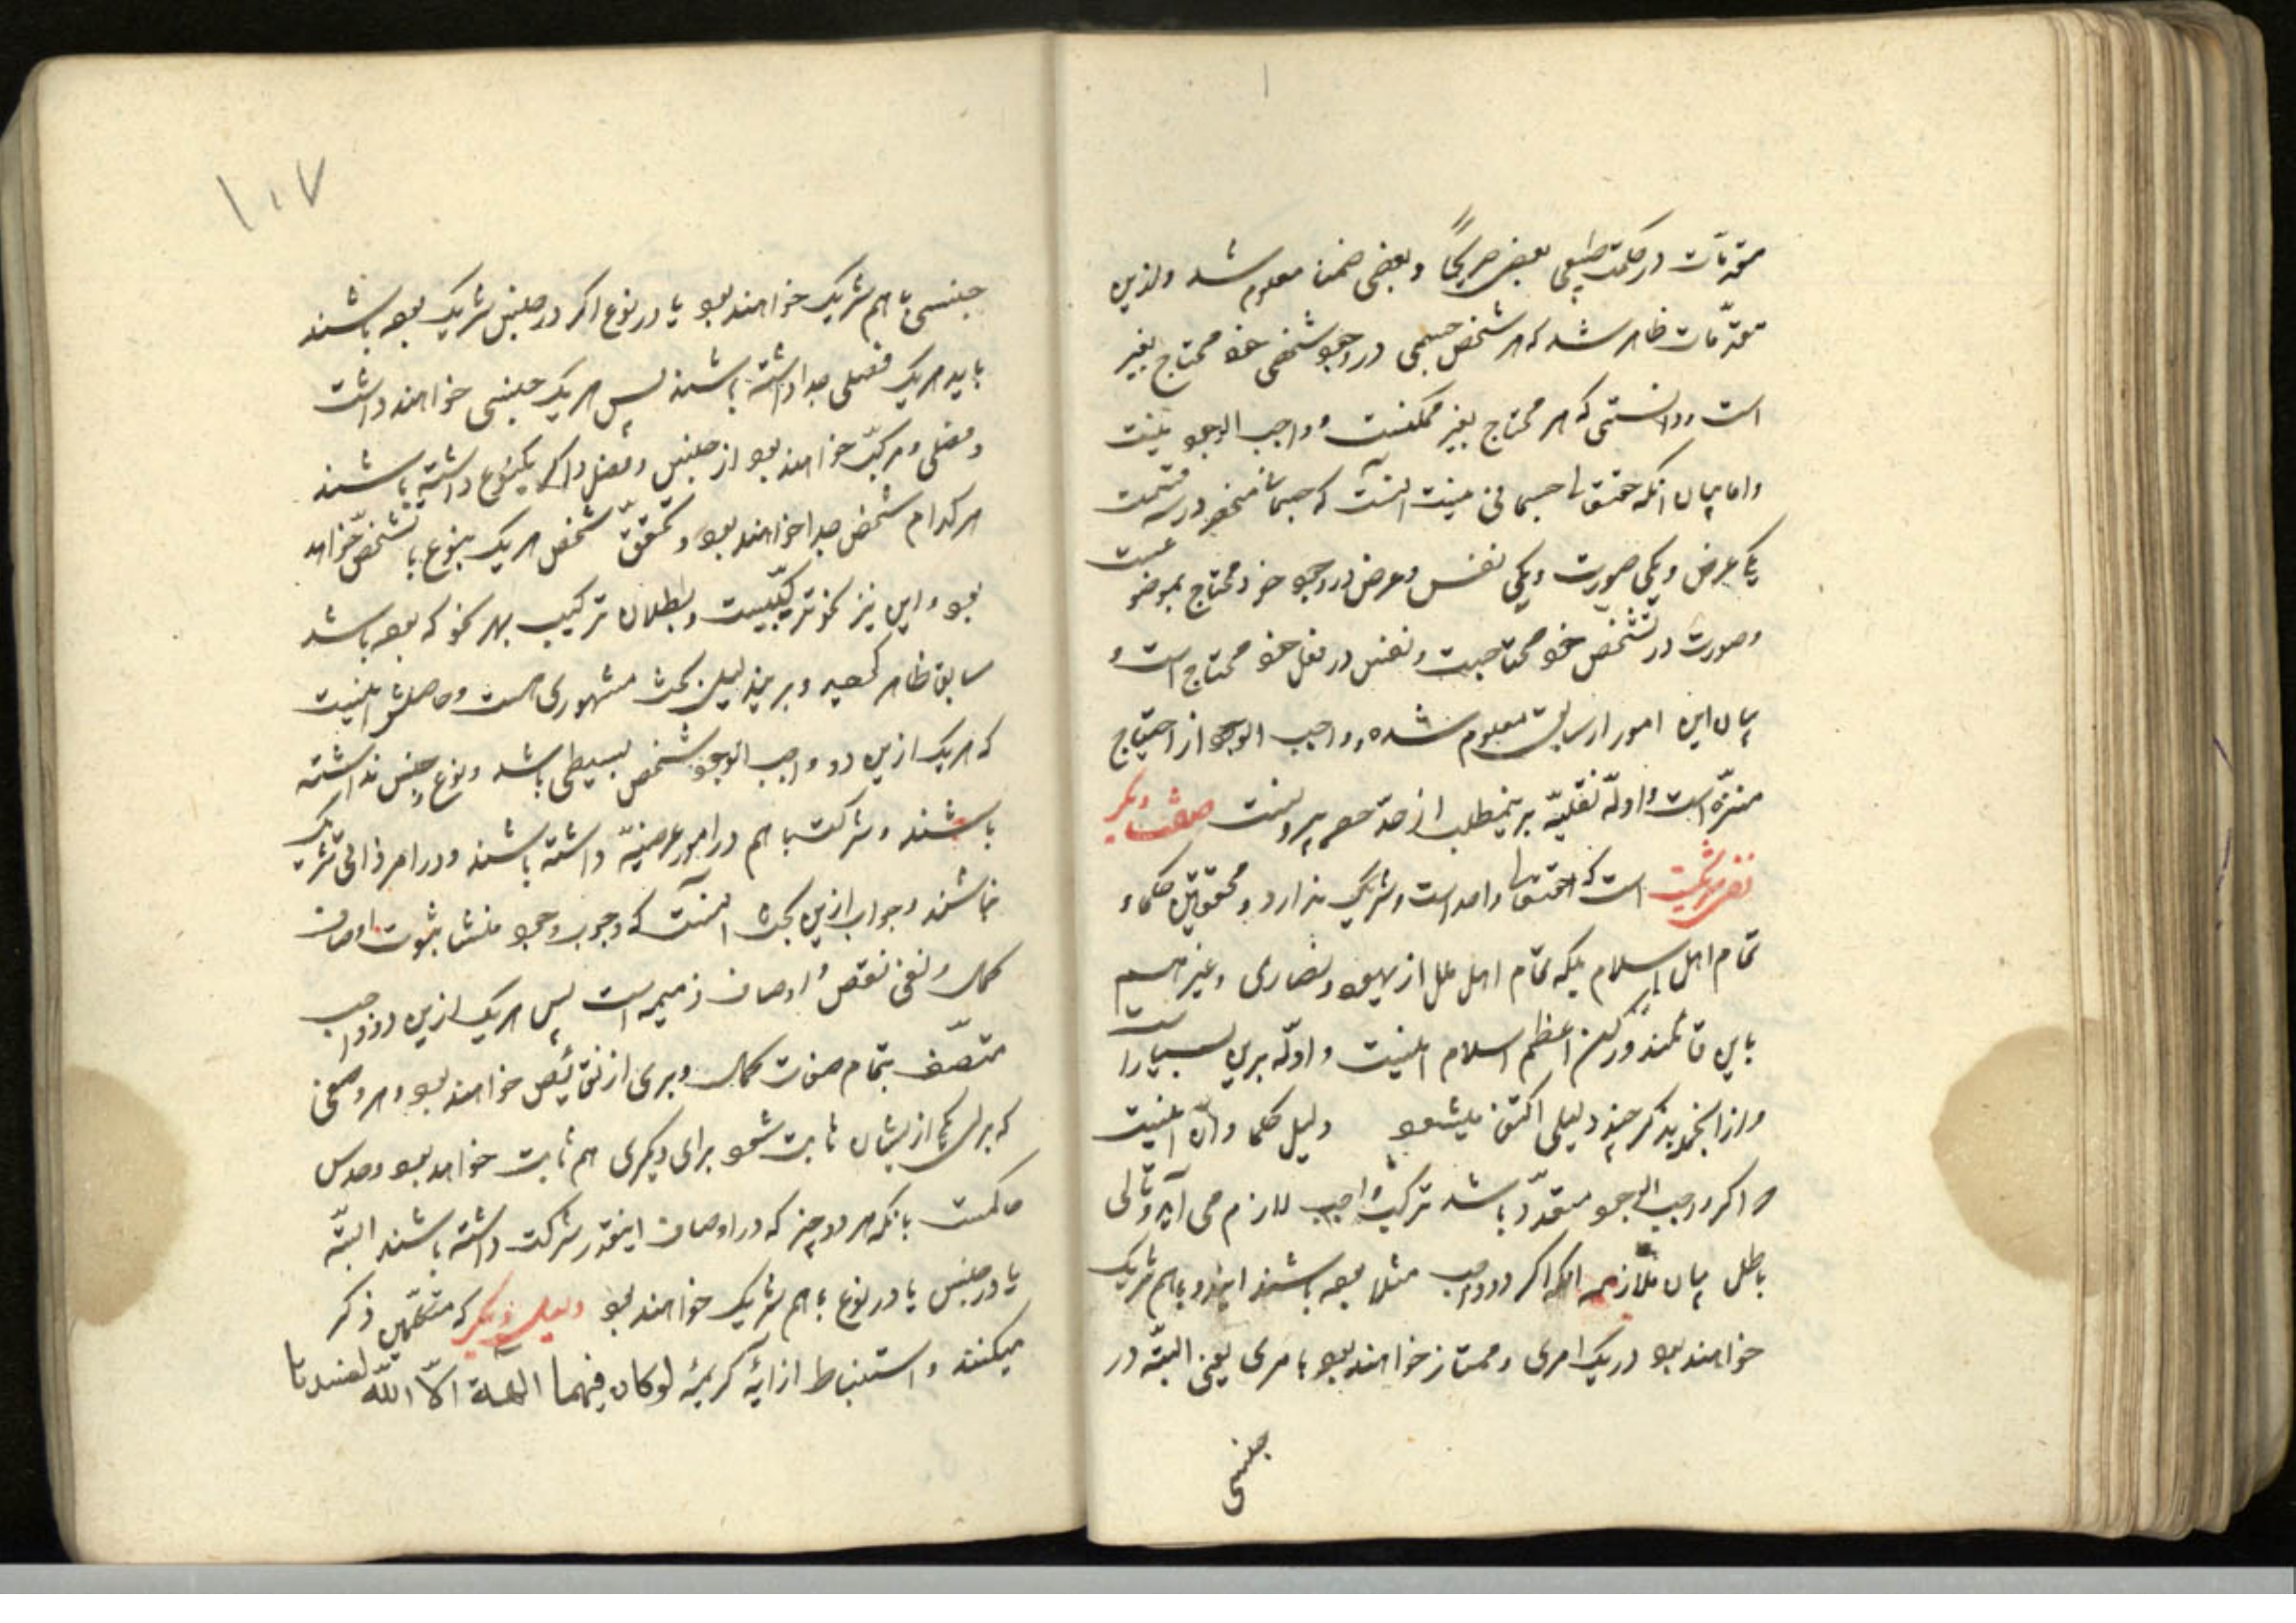 مقدمات در حکمت طبیعی بعضی صریحاً و بعضی ضمنا معلوم شد و ازین
مقدّمات ظاهر شد که هر شخص جسمی در وجود شخصی خود محتاج بغیر
است و دانستی که هر محتاج بغیر ممکنست و واجب الوجود نیست
و اما بیان انکه حقتعالی جسمانی نیست اینست که جسمانی منحصر در سه قسمت
یکی عرض و یکی صورت و یکی نفس و عرض در وجود خود محتاج بموضوعست
و صورت در تشخص خود محتاجست و نفس در فعل خود محتاج است و
بیان این امور از سابق معلوم شده و واجب الوجود از احتیاج
منزّه است و ادلّه نقلیّه برینمطلب از حدّ حصر بیرونست صفت دیگر
نفی شریکست است که حقتعالی واحد است و شریک ندارد و محققین حکما و
تمام اهل اسلام بلکه تمام اهل ملل از یهود و نصاری و غیرهم
باین قائلند و رکن اعظم اسلام اینست و ادلّه برین بسیار است
و از انجمله بذکر چند دلیلی اکتفا میشود دلیل حکما و آن اینست
که اگر واجب الوجود متعدّد باشد ترکیب واجب لازم می آید و تالی
باطل بیان ملازمه انکه اگر دو واجب مثلا بوده باشند ایندو باهم شریک
خواهند بود در یک امری و ممتاز خواهند بود بامری یعنی البتّه در
جنسی
۱۰۷
جنسی با هم شریک خواهند بود یا در نوع اگر در جنس شریک بوده باشند
باید هریک فصلی جدا داشته باشند پس هریک جنسی خواهند داشت
و فصلی و مرکّب خواهند بود از جنس و فصل و اگر یکنوع داشته باشند
هرکدام شخص جدا خواهند بود و تحقّق شخص هریک بنوع با تشخّص خواهد
بود و این نیز نحو ترکیبیست و بطلان ترکیب بهر نحو که بوده باشد
سابق ظاهر گردید و برین دلیل بحث مشهوری هست و حاصلش اینست
که هریک ازین دو واجب الوجود شخص بسیطی باشد و نوع و جنس نداشته
باشند و شرکت با هم در امور عرضیّه داشته باشند و در امر ذاتی شریک
نباشند و جواب ازین بحث اینست که وجوب وجود منشا ثبوت اوصاف
کمال و نفی نقص و اوصاف ذمیمه است پس هریک ازین دو واجب
متّصف بتمام صفات کمال و بری از نقائص خواهند بود و هر وصفی
که برای یکی ازیشان ثابت شود برای دیگری هم ثابت خواهد بود و حدس
حاکمست بانکه هر دو چیز که در اوصاف اینقدر شرکت داشته باشند البتّه
یا در جنس یا در نوع با هم شریک خواهند بود دلیل دیگر که متکلّمین ذکر
میکنند و استنباط از آیهٔ کریمهٔ لو کان فیهما الهة الاّ اللّه لفسدتا